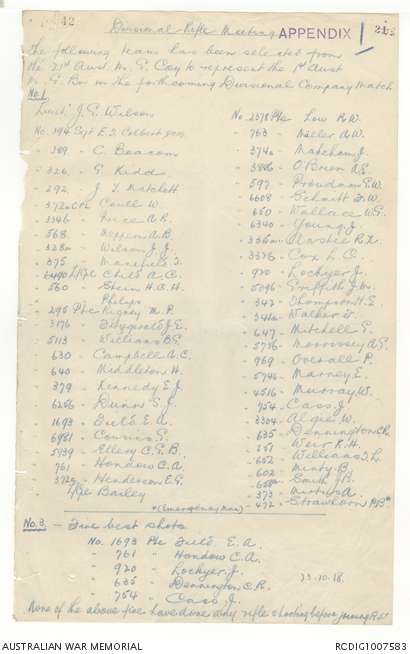 42
Divisional Rifle Meeting APPENDIX 1
The following teams has been selected from
the 21st Aust. M. G. Coy to represent the 1st Aust
M. G. Bn in the forthcoming Divisional Company Match
No. 1
Lieut. J. G. Wilson
No. 194 Sgt E. S. Colbert
389 - C. Beacom
326 - G. Kidd
292 - J. Y. Matchett
Caull W.
3346 - Price A. R.
568 - A. B.
Wilson J. J.
375
6490 L/Cpl Child A. C.
560 - Shein H. C. H.
Philips
295 Pte Rigney M. P.
3176 - Fitzgerald J. E.
5113 - Williams B. G.
630 - Campbell A. C.
640 - Middleton H.
379 - Kennedy E. J.
6256 - Dunn S. J.
1693 - Tuts E. A.
6981 - Cousins G.
5939 - Ellery C. G. B.
761 - Hondow C. A.
Henderson E. G.
L/Cpl Bailey
No. 2378 Pte Low R. W.
763 - Miller A. W.
Matcham J.
O'Brien A. G.
597 - Proudman G. W.
6608 - Schardt F. W.
650 - Wallace W. G.
6340 - Young J.
3376 - Cox L. O.
920 - Lockyer J.
5096 - Griffith J. W.
347 - Thompson H. E.
Walker
647 - Mitchell P.
5776 - Morrissey A. G.
969 - Overall P.
Marney E.
4516 - Murray W.
754 - Cass J.
3304 - Algie W.
635 - Dennington C. R.
251 - Weir R. H.
652 - Williams S. L.
602 - Minty B.
Smith J. B.
373 - A.
472 - Strawhorn P. B*
*(Emergency Man)
No. 3. - Five best shots
No. 1693 Pte Tuts E. A.
761 - Hondow C. A.
920 - Lockyer J.
635 - Dennington C. R.
754 - Cass J.
23.10.18.
None of the above five have done any rifle shooting before joining A.I.F.
AUSTRALIAN WAR MEMORIAL
RCDIG1007583